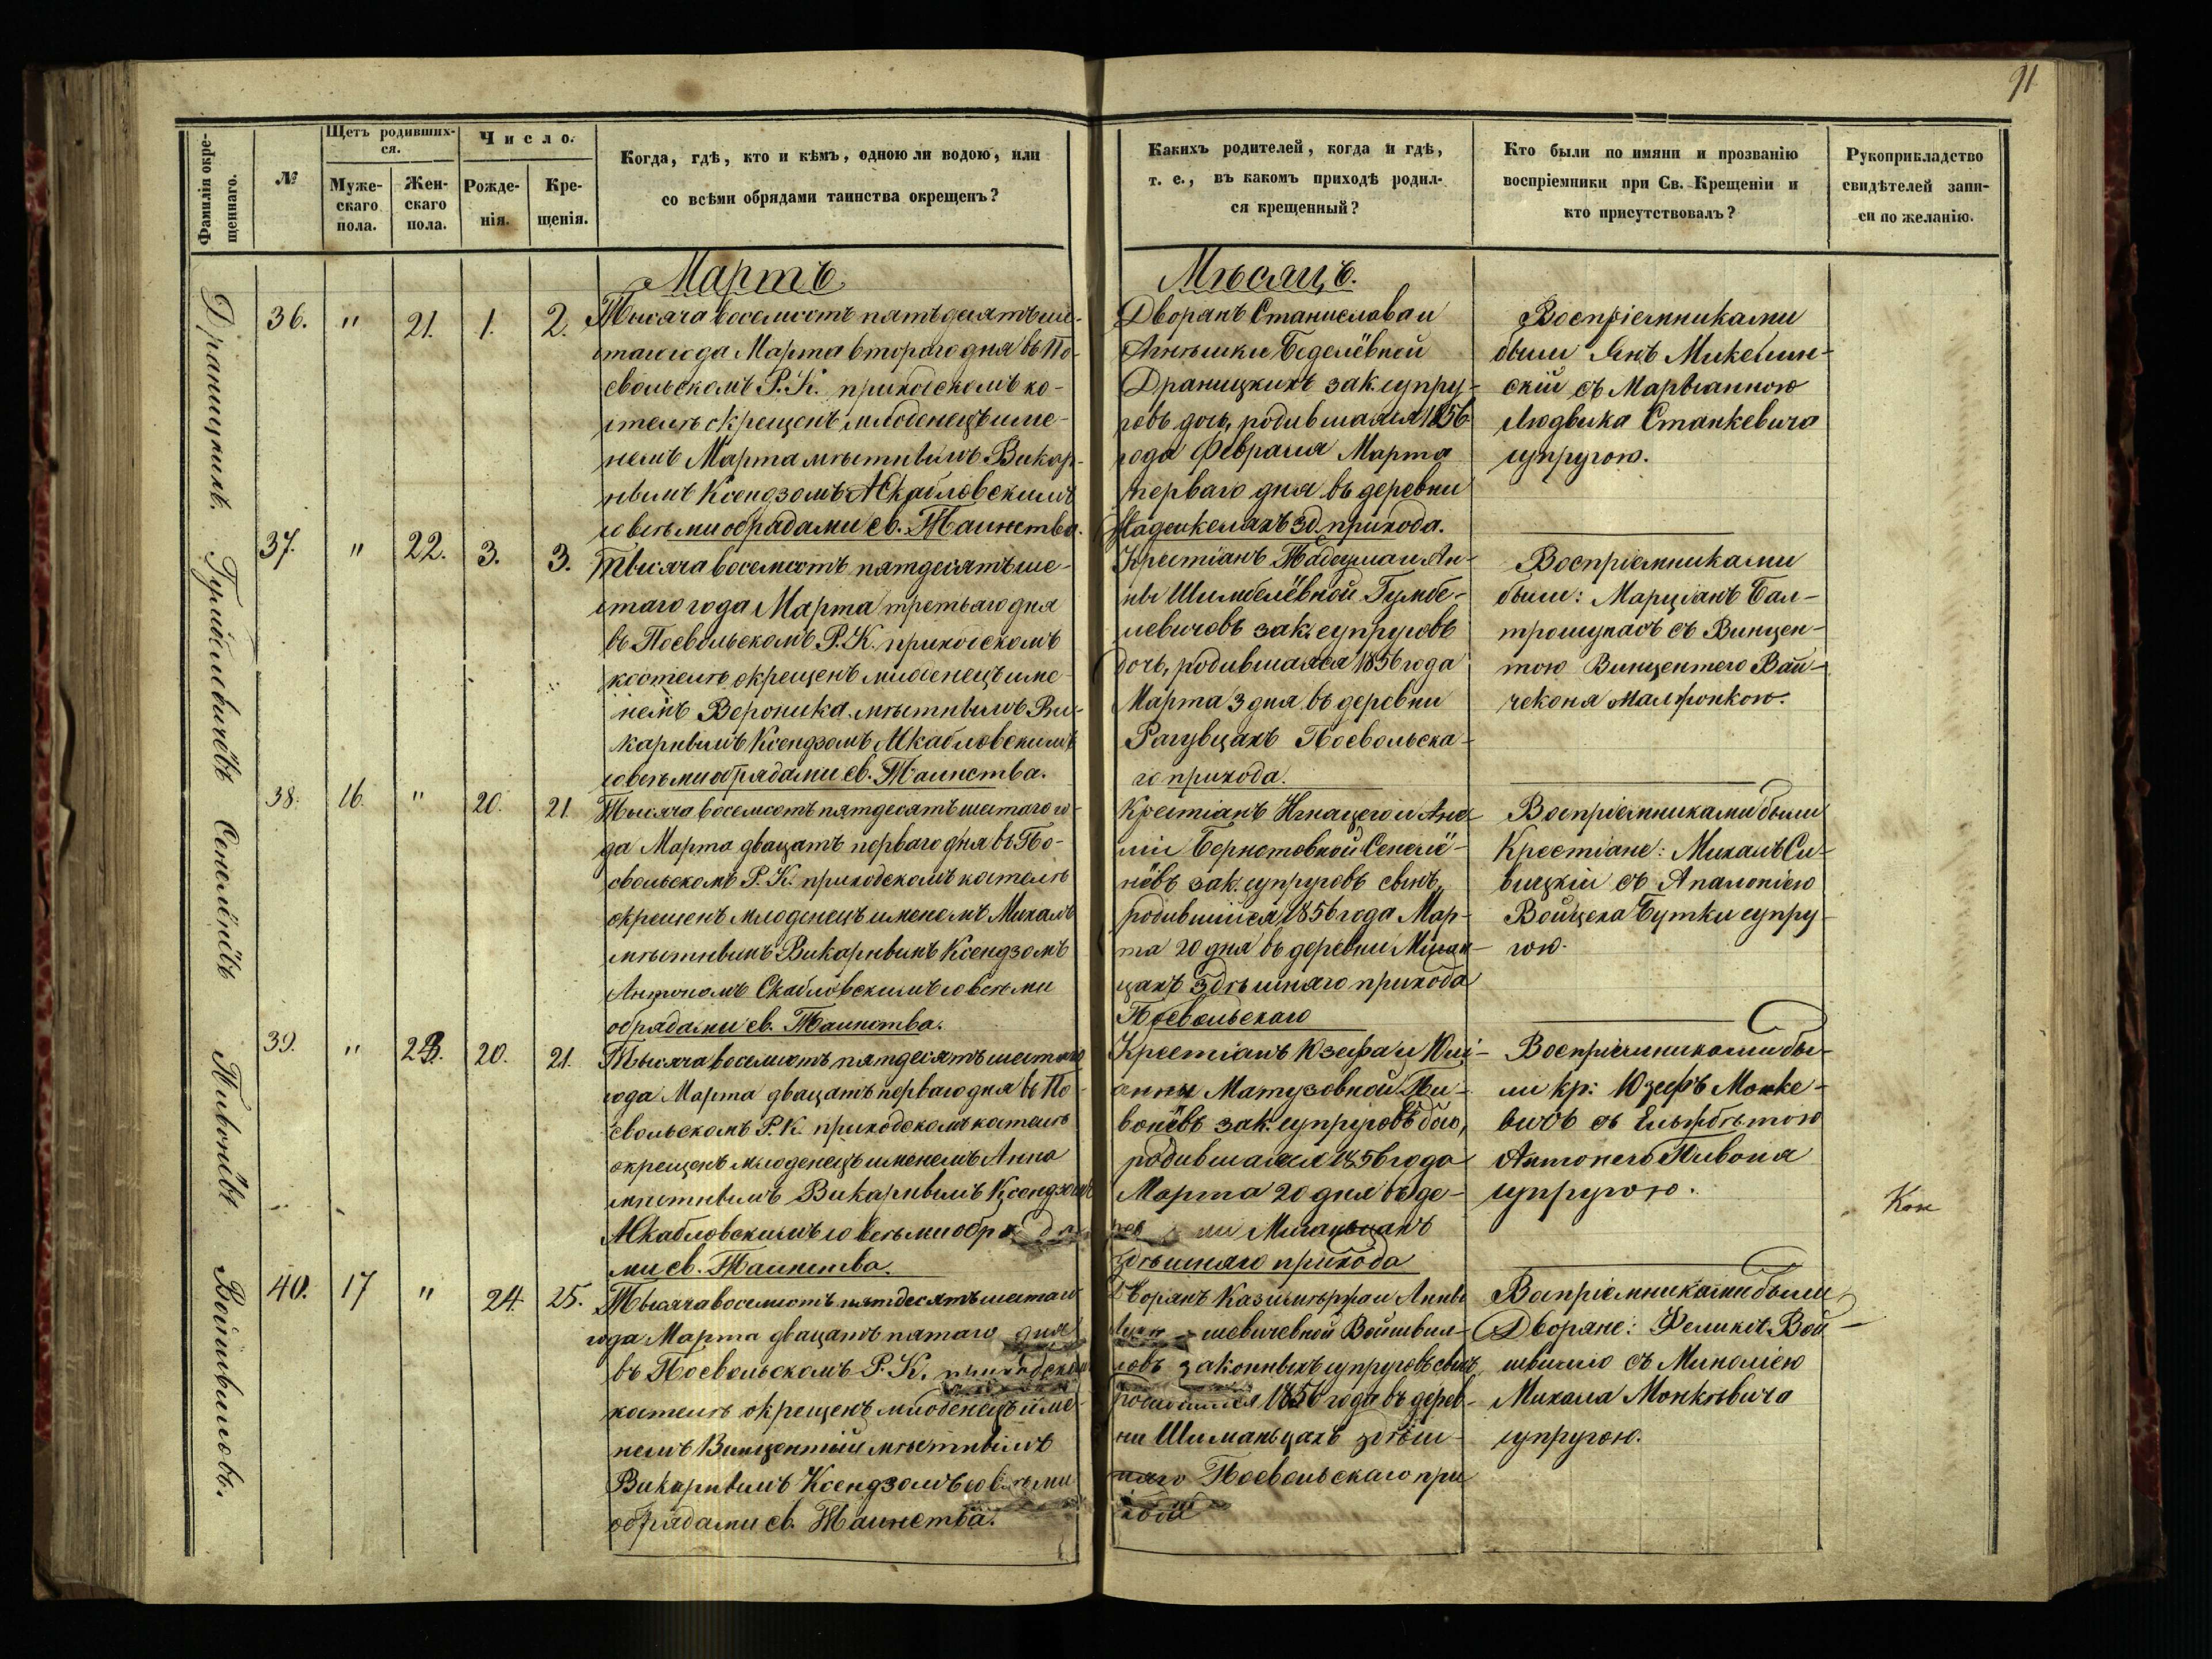 91
Фамилія окре-
щеннаго.
№
Щетъ родивших-
ся.
Муже-
скаго
пола.
Жен-
скаго
пола.
Число.
Рожде-
нія.
Кре-
щенія.
Когда, гдѣ, кто и кѣмъ, одною ли водою, или
со всѣми обрядами таинства окрещенъ?
Какихъ родителей, когда и гдѣ,
т. е., въ какомъ приходѣ родил-
ся крещенный?
Кто были по имяни и прозванію
воспріемники при Св. Крещеніи и
кто присутствовалъ?
Рукоприкладство
свидѣтелей запи-
си по желанію.
Мартъ
Мѣсяцъ.
Драницкихъ.
36. " 21. 1. 2.
Тысяча восемсотъ пятьдесятъ ше-
стаго года Марта втораго дня въ По-
свольскомъ Р. К. приходскомъ ко-
стелѣ окрещенъ младенецъ име-
немъ Марта мѣстнымъ Викар-
нымъ Ксендзомъ А Скабловскимъ
со всѣми обрядами св. Таинства.
Дворянъ Станислава и
Агнѣшки Беделёвной
Драницкихъ зак. супру-
говъ дочь, родившаяся 1856
года Февраля Марта
перваго дня въ деревни
зд. прихода.
Воспріемниками
были Янъ
скій съ Марыанною
Людвика Станкевича
супругою.
Гумбелевичовъ
37. " 22. 3. 3.
Тысяча восемсотъ пятдесятъ ше-
стаго года Марта третьяго дня
въ Посвольскомъ Р. К. приходскомъ
костелѣ окрещенъ младенецъ име-
немъ Вероника мѣстнымъ Ви-
карнымъ Ксендзомъ А Скабловскимъ
со всѣми обрядами св. Таинства.
Крестіанъ Тадеуша и Ан-
ны Шимбелёвной Гумбе-
левичовъ зак. супруговъ
дочь, родившаяся 1856 года
Марта 3 дня въ деревни
Рагувцахъ Посвольска-
го прихода.
Воспріемниками
были: Марціанъ Бал-
трошунасъ съ Винцен-
тою Винцентего Вай-
чеконя малжонкою.
38. 16. " 20. 21.
Тысяча восемсотъ пятдесятъ шестаго го-
да Марта двацатъ перваго дня въ По-
свольскомъ Р. К. приходскомъ костелѣ
окрещенъ младенецъ именемъ Михалъ
мѣстнымъ Викарнымъ Ксендзомъ
Антономъ Скабловскимъ со всѣми
обрядами св. Таинства.
Крестіанъ Игнацего и
Бернотовной
зак. супруговъ сынъ,
родившійся 1856 года Мар-
та 20 дня въ деревни
цахъ здѣшняго прихода
Посвольскаго
Воспріемниками были
Крестіане: Михалъ Си-
вицкій съ Апалоніею
Войцеха Бутки супру-
гою.
Пивонёвъ
39. " 23. 20. 21.
Тысяча восемсотъ пятдесятъ шестаго
года Марта двацатъ перваго дня въ По-
свольскомъ Р. К. приходскомъ костелѣ
окрещенъ младенецъ именемъ Анна
мѣстнымъ Викарнымъ Ксендзомъ
А Скабловскимъ со всѣми обряда-
ми св. Таинства.
Крестіанъ Юзефа и Юлі-
анны Матузовной Пи-
вонёвъ зак. супруговъ дочь,
родившаяся 1856 года
Марта 20 дня въ де-
ревни
здѣшняго прихода
Воспріемниками бы-
ли кр: Юзефъ Монке-
вичъ съ Ельжбѣтою
Антонего Пивоня
супругою.
Войшвиловъ.
40. 17 " 24. 25.
Тысяча восемсотъ пятдесятъ шестаго
года Марта двацатъ пятаго дня
въ Посвольскомъ Р. К. приходскомъ
костелѣ окрещенъ младенецъ име-
немъ Винцентій мѣстнымъ
Викарнымъ Ксендзомъ со всѣми
обрядами св. Таинства.
Дворянъ Казимѣржа и Анны
Войшвил-
ловъ законныхъ супруговъ сынъ,
родившійся 1856 года въ дерев-
ни Шиманьцахъ здѣш-
няго Посвольскаго при
хода
Воспріемниками были
Дворяне: Феликсъ Вой-
швилло съ
Михала Монкѣвича
супругою.